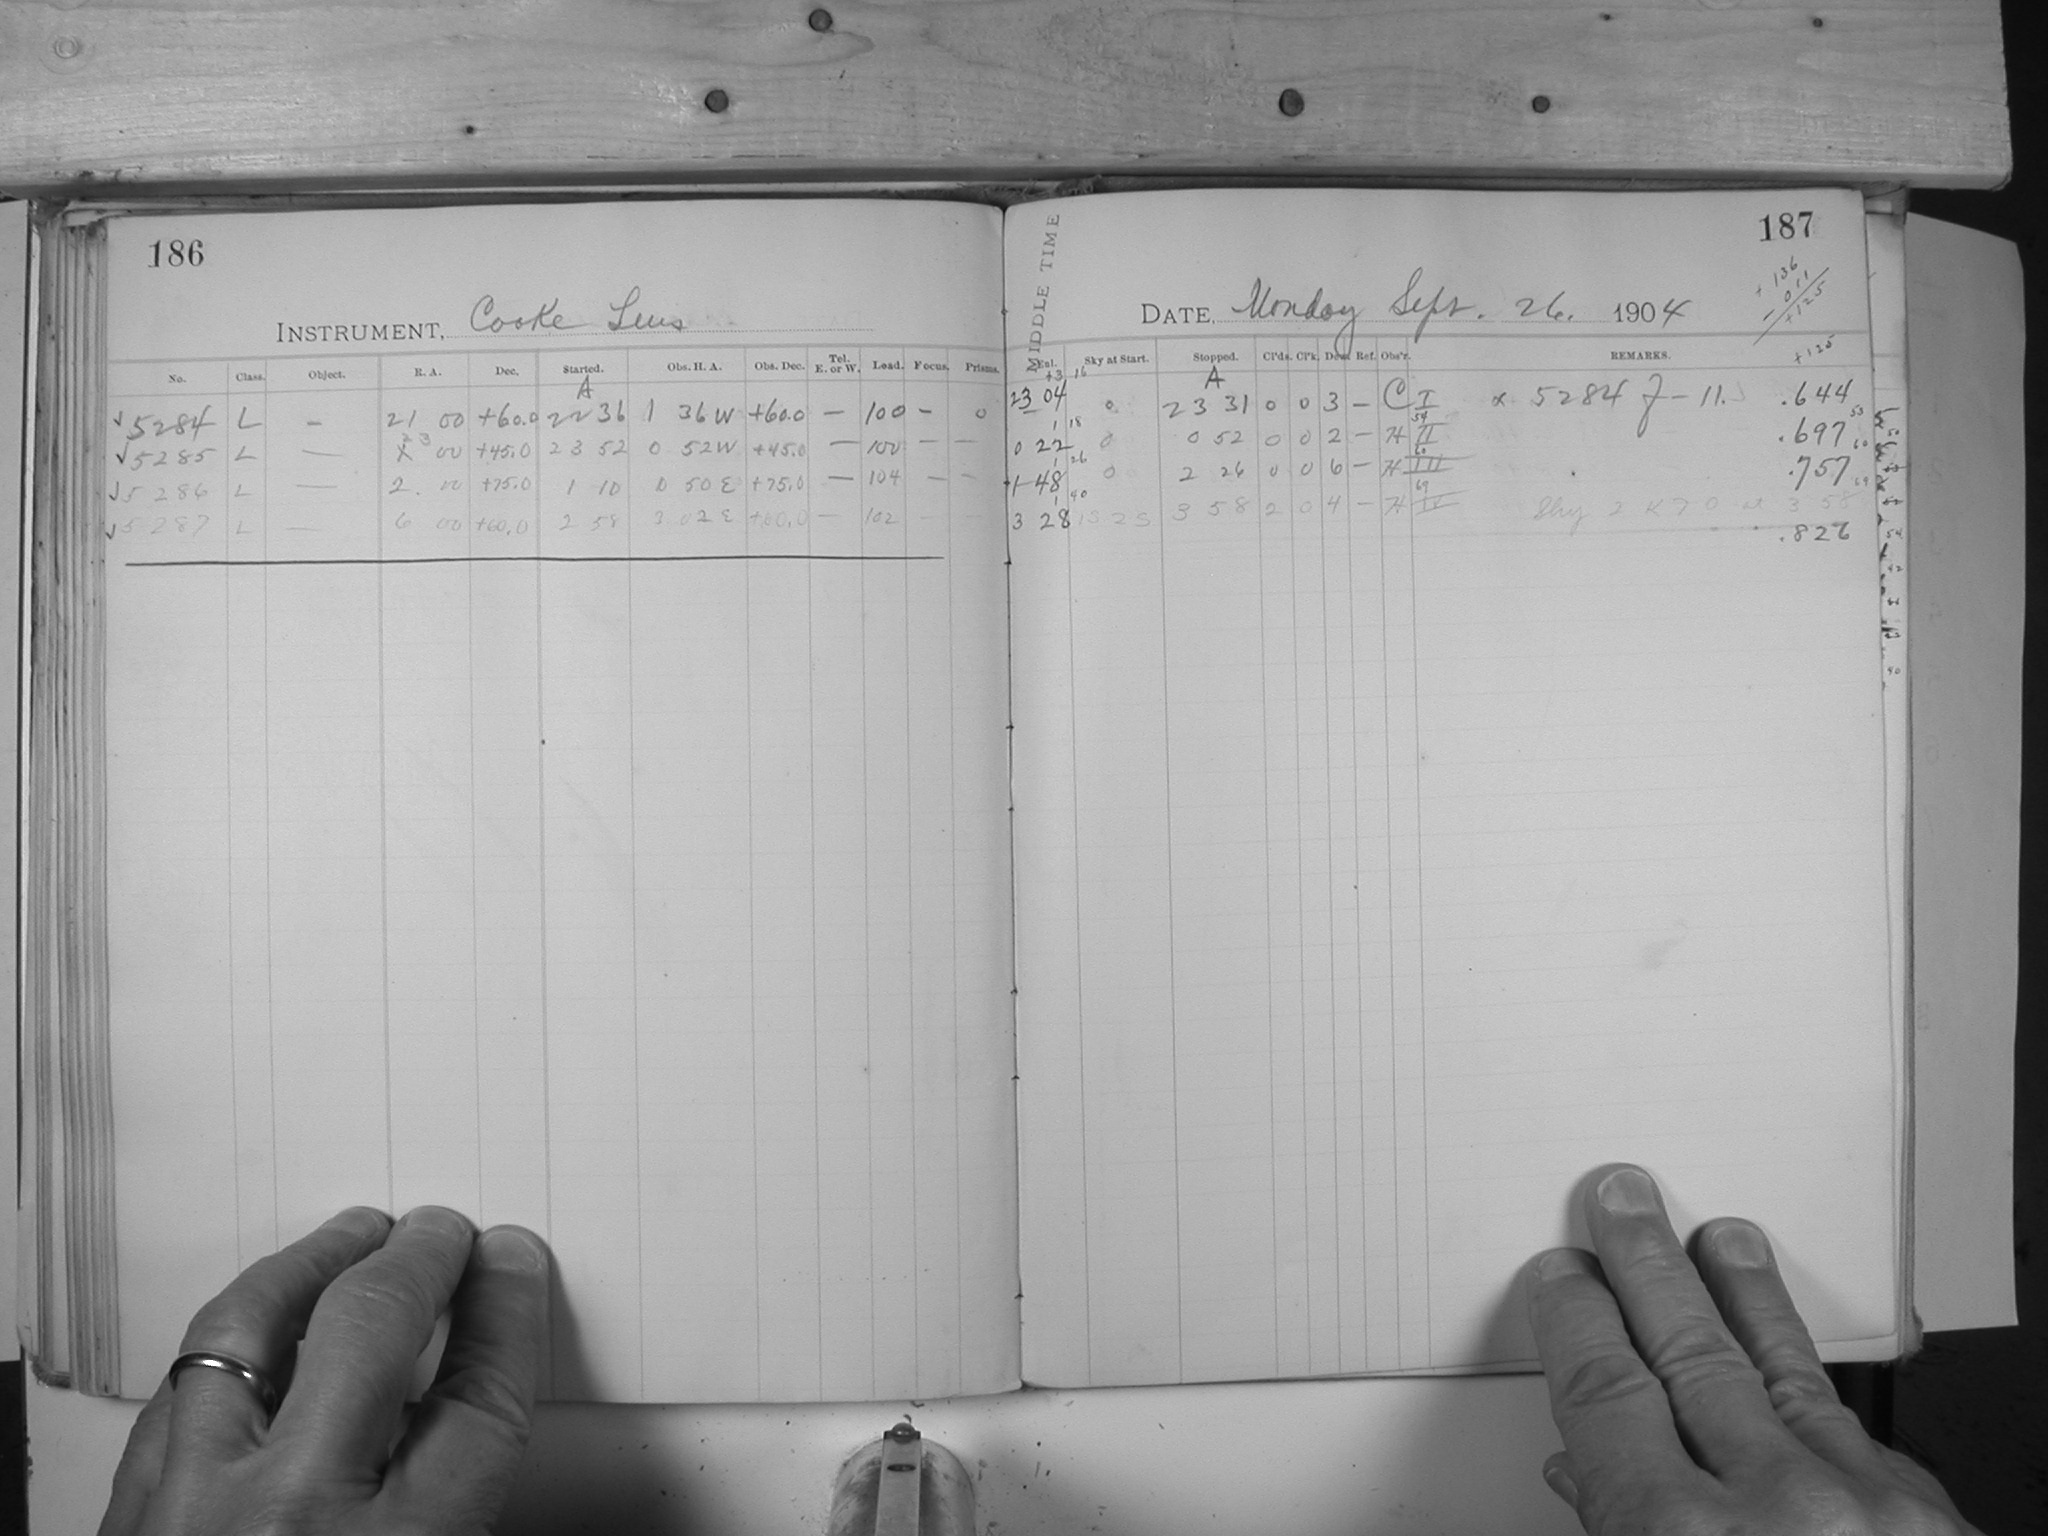 186
INSTRUMENT, Cooke Lens
No. Class. Object. R. A. Dec. Started. Obs. H. A. Obs. Dec. Tel. E. or W. Load. Focus. Prisms.
A
✓5284 L — 21 00 +60.0 22 36 1 36W +60.0 — 100 — 0
✓5285 L — 23 00 +45.0 23 52 0 52W +45.0 — 100 — —
✓5286 L — 2 00 +75.0 1 10 0 50E +75.0 — 104 — —
✓5287 L — 6 00 +60.0 2 58 3 02E +60.0 — 102 — —
187
MIDDLE TIME
+136
-011
+125
DATE, Monday Sept. 26. 1904
+125
Enl. Sky at Start. Stopped. Cl'ds. Cl'k. Dew. Ref. Obs'r. REMARKS.
+3 16
A
23 04 0 23 31 0 0 3 — C I x 5284 J - 11. .644
1 18
0 22 0 0 52 0 0 2 — H II .697 53
1 26
1 48 0 2 26 0 0 6 — H III .757 60
1 40
3 28 3 58 2 0 4 — H IV Sky 2 K 7 0 at 3 58 69
.826